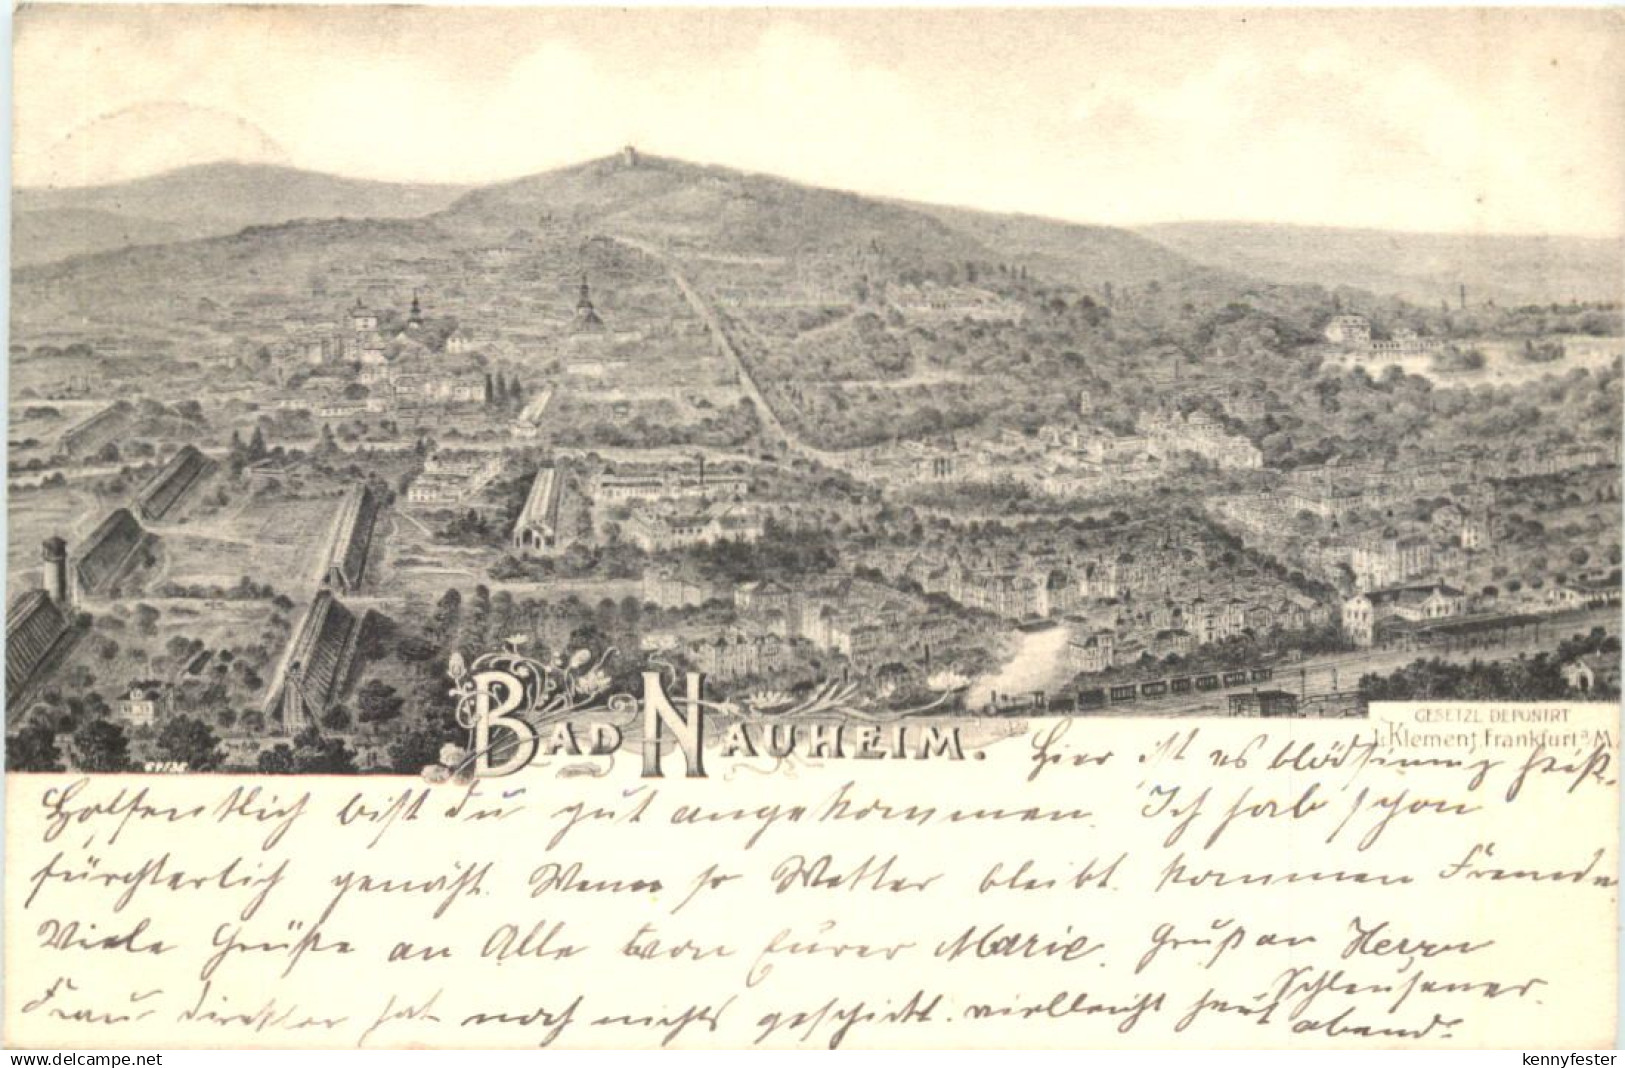 BAD NAUHEIM.
GESETZL DEPONIRT
L. Klement, Frankfurt a/M
Hier ist es blödsinnig heiß.
Hoffentlich bist du gut angekommen. Ich hab schon
fürchterlich genäht. Wenn so Wetter bleibt. kommen Fremde
Viele Grüße an Alle von Eurer Marie. Gruß an Herrn
Schleusener.
Frau Direktor hat noch nichts geschickt. vielleicht heut
abend.
delcampe.net
kennyfester